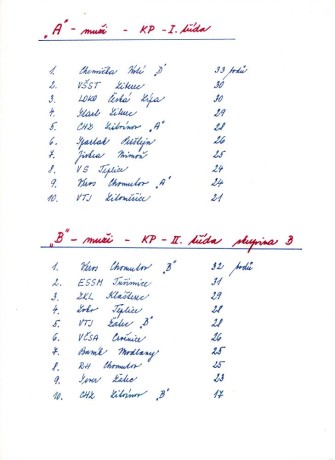 „A" - muži - KP - I. třída
1. Chemička Ústí „D" 33 bodů
2. VŠST Liberec 30
3. LOKO Česká Lípa 30
4. Slavia Liberec 29
5. CHZ Litvínov „A" 28
6. Spartak 26
7. Jiskra Mimoň 25
8. VS Teplice 24
9. Keros Chomutov „A" 24
10. VTJ Litoměřice 21
„B" - muži - KP - II. třída skupina B
1. Keros Chomutov „B" 32 bodů
2. ESSM Tušimice 31
3. ZKL Klášterec 29
4. Loko Teplice 28
5. VTJ Žatec „B" 28
6. VČSA Ervěnice 26
7. Baník Modlany 25
8. RH Chomutov 25
9. Žatec 23
10. CHZ Litvínov „B" 17